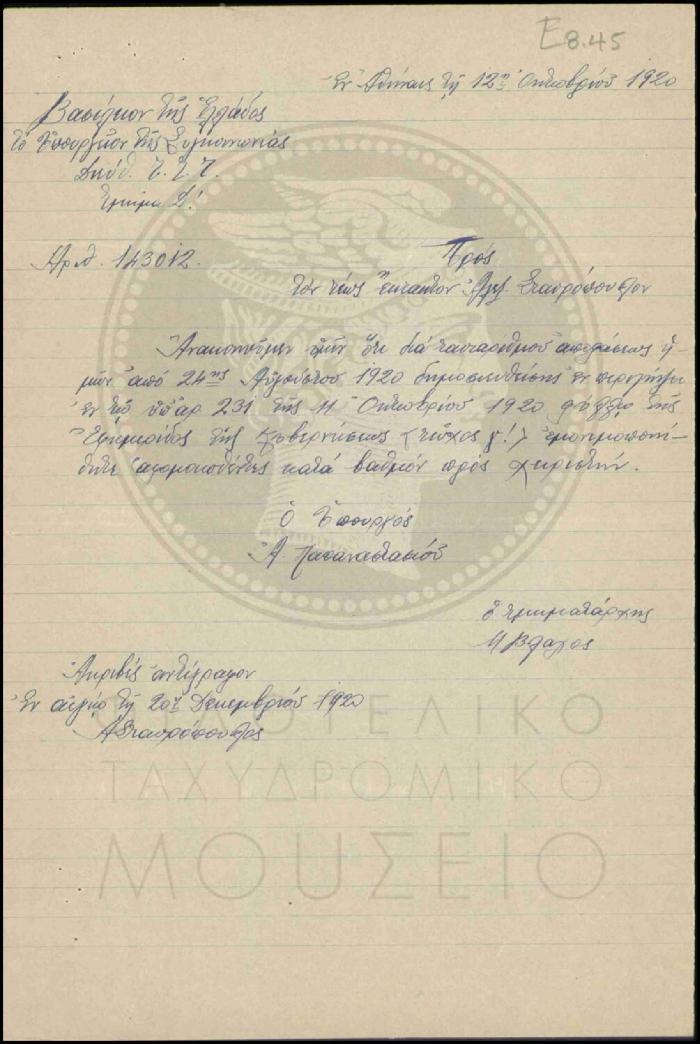 Ε8.45
Ἐν Ἀθήναις τῇ 12ῃ Ὀκτωβρίου 1920
Βασίλειον τῆς Ἑλλάδος
Τὸ Ὑπουργεῖον τῆς Συγκοινωνίας
Διεύθ. Τ.Τ.Τ.
Τμῆμα Δ!
Ἀριθ. 143012.
Πρὸς
Τὸν τέως ἔκτακτον Ἀλεξ. Σταυρόπουλον
Ἀνακοινοῦμεν ὑμῖν ὅτι διὰ ταυταρίθμου ἀποφάσεως ἡ-
μῶν ἀπὸ 24ης Αὐγούστου 1920 δημοσιευθείσης ἐν περιλήψει
ἐν τῷ ὑπ' ἀρ 231 τῆς 11 Ὀκτωβρίου 1920 φύλλῳ τῆς
Ἐφημερίδος τῆς Κυβερνήσεως (τεῦχος γ!) ἐμονιμοποιή-
θητε ἀξομοιωθέντες κατὰ βαθμὸν πρὸς χειριστήν.
Ὁ Ὑπουργός
Ἀ. Παπαναστασίου
Ὁ Τμηματάρχης
Βλάχος
Ἀκριβὲς ἀντίγραφον
Ἐν Αἰγίῳ τῇ 20ῃ Δεκεμβρίου 1920
ΑΣταυρόπουλος
ΦΙΛΟΤΕΛΙΚΟ
ΤΑΧΥΔΡΟΜΙΚΟ
ΜΟΥΣΕΙΟ